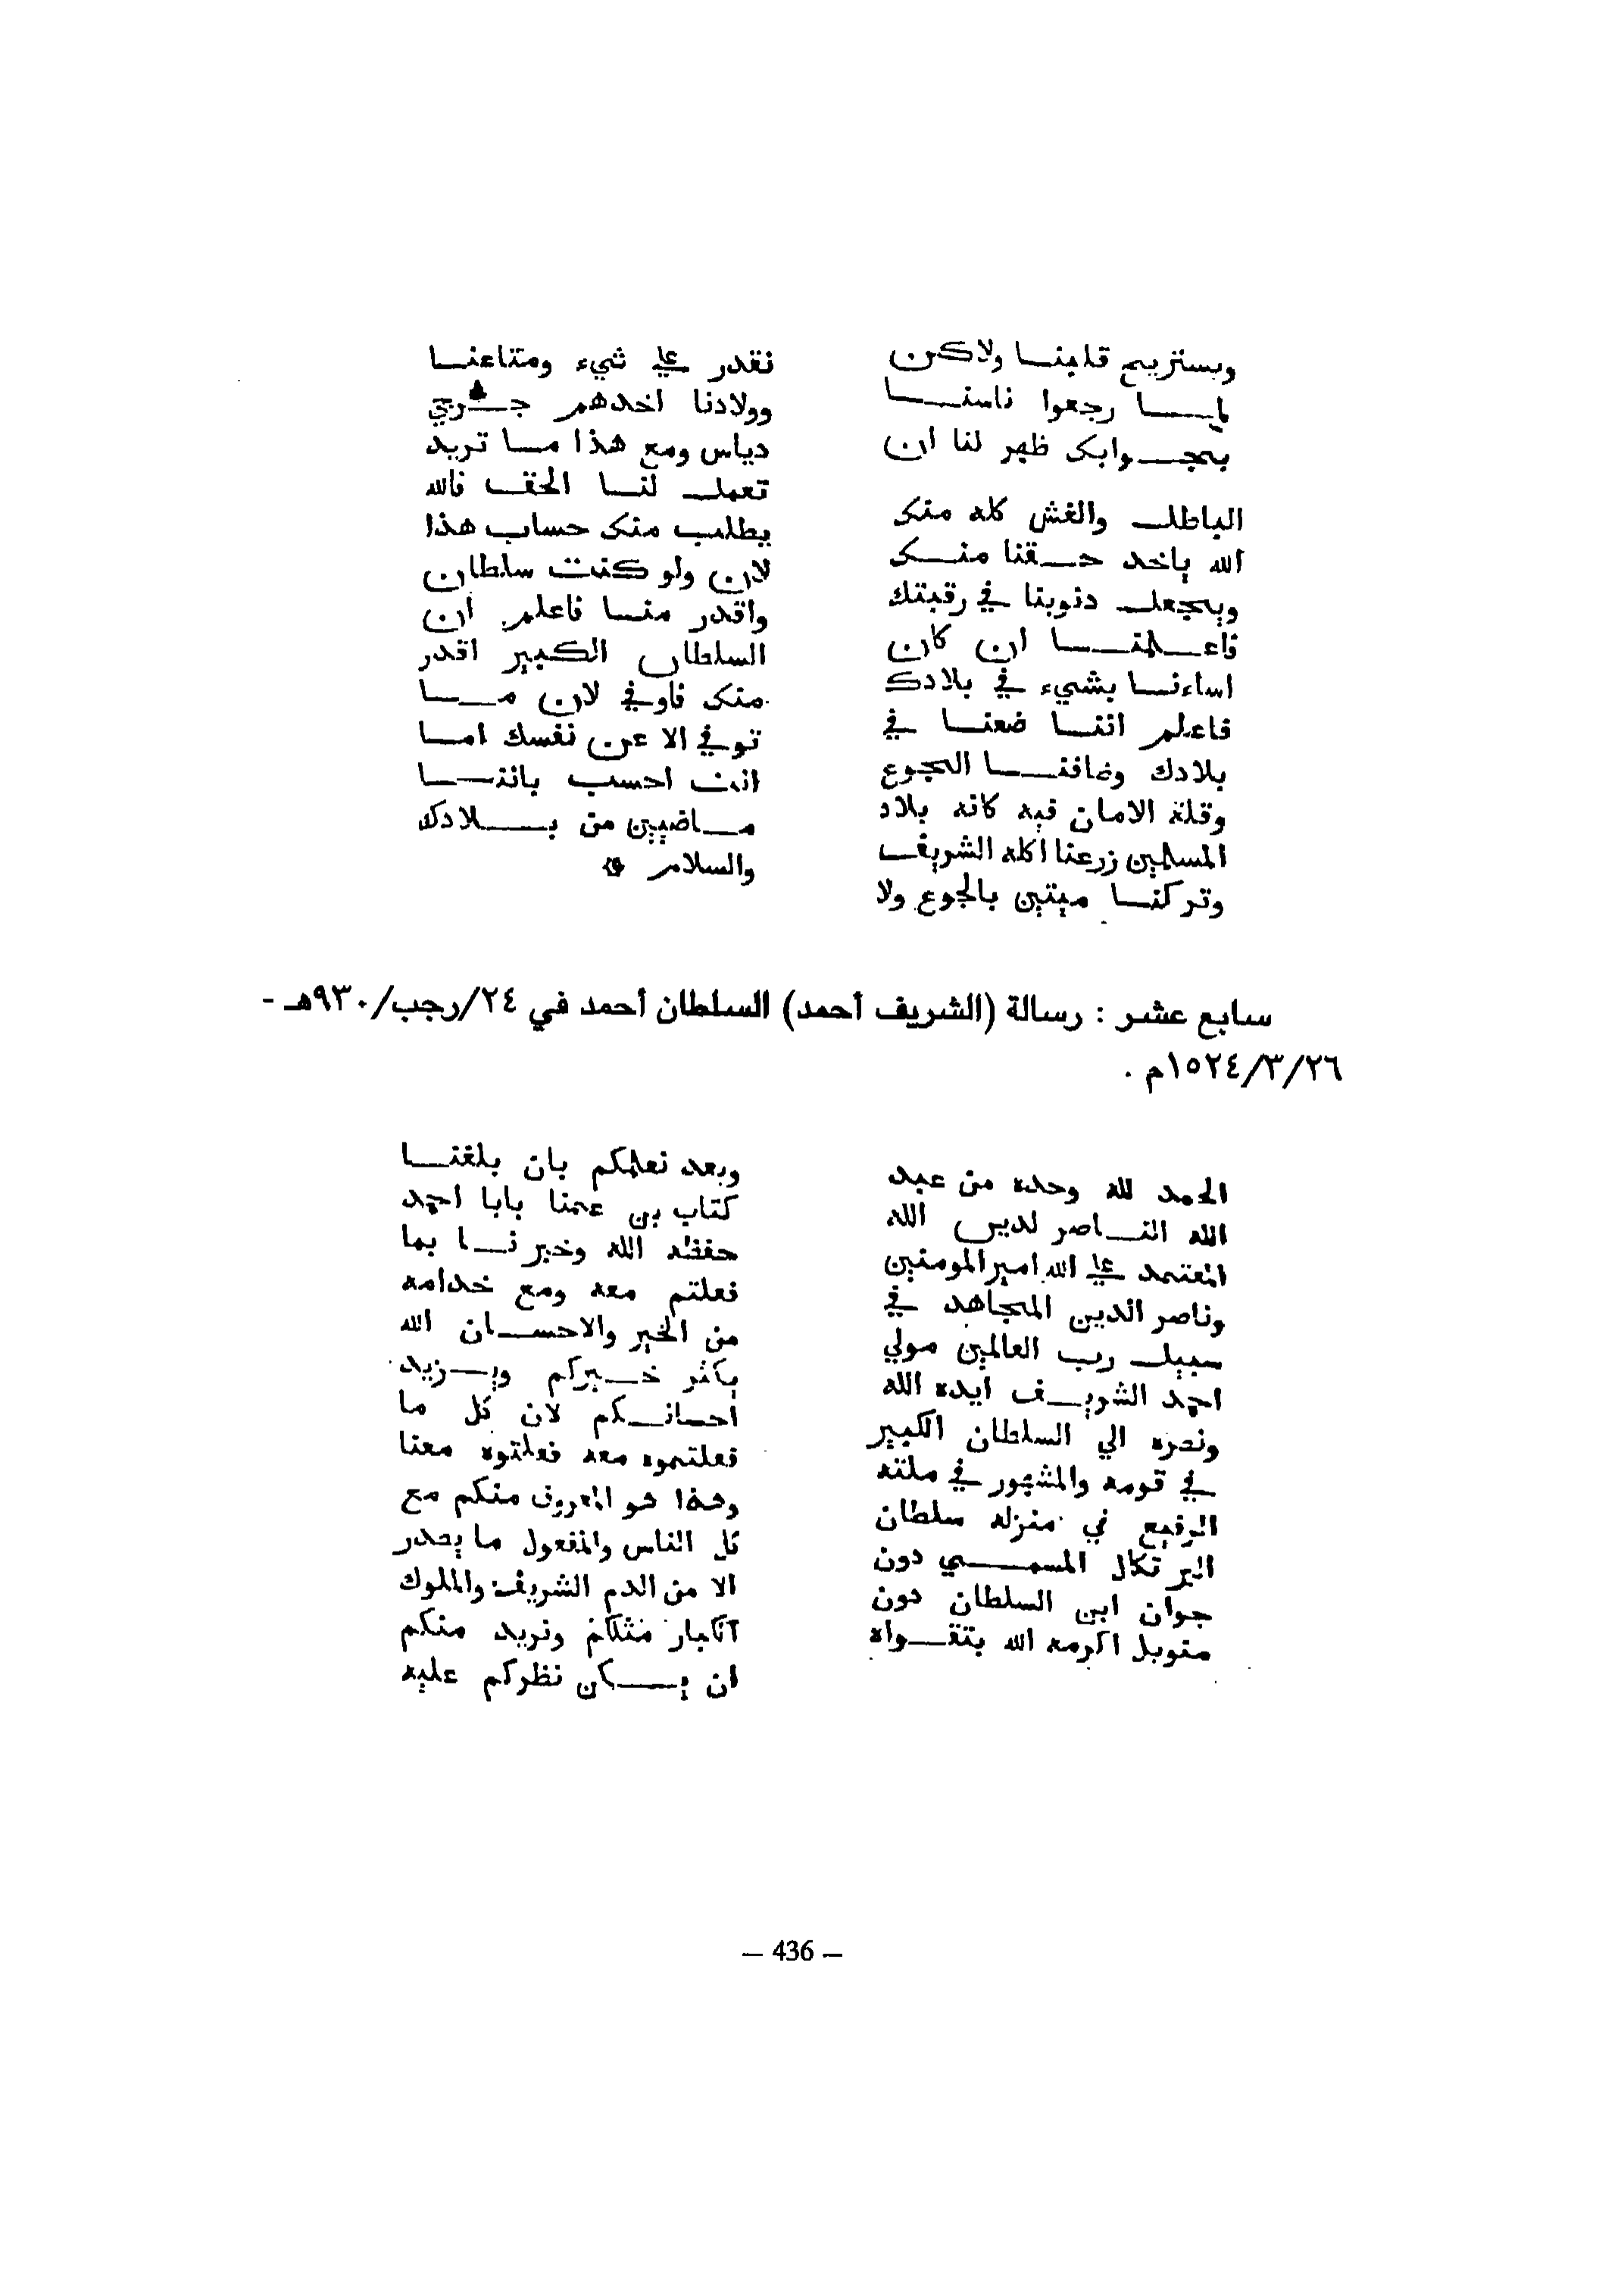 ويستريح قلبنا ولاكن
لما رجعوا ناسنا
بجوابك ظهر لنا ان
الباطل والغش كله منك
الله ياخد حقنا منك
ويجعل دنوبنا في رقبتك
ان كان
اساءنا بشيء في بلادك
فاعلم اننا ضعنا في
بلادك وضافنا الجوع
وقلة الامان فيه كانه بلاد
المسلمين زرعنا اكله الشريف
وتركنا ميتين بالجوع ولا
نقدر على شيء ومتاعنا
وولادنا اخدهم جربي
دياس ومع هذا ما تريد
تعمل لنا الحق فالله
يطلب منك حساب هذا
لان ولو كنت سلطان
واقدر منا فاعلم ان
السلطان الكبير اقدر
منك فاوفي لان ما
توفي الا عن نفسك اما
انت احسب باننا
ماضيين من بلادك
والسلام
سابع عشر : رسالة (الشريف أحمد) السلطان أحمد في ٢٤/رجب/٩٣٠هـ -
١٥٢٤/٣/٢٦م .
الحمد لله وحده من عبد
الله الناصر لدين الله
المعتمد على الله امير المومنين
وناصر الدين المجاهد في
سبيل رب العالمين مولي
احمد الشريف ايده الله
ونصره الي السلطان الكبير
في قومه والمشهور في ملته
الرفيع في منزله سلطان
البرتكال المسمي دون
جوان ابن السلطان دون
منويل اكرمه الله بتقواه
وبعد نعلمكم بان بلغنا
كتاب بن عمنا بابا احمد
حفظه الله وخبرنا بما
فعلتم معه ومع خدامه
من الخير والاحسان الله
يكثر خيركم ويزيد
احسانكم لان كل ما
فعلتموه معه فعلتوه معنا
وهذا هو المعروف منكم مع
كل الناس والمفعول ما يصدر
الا من الدم الشريف والملوك
الكبار مثلكم ونريد منكم
ان يكن نظركم عليه
– 436 –